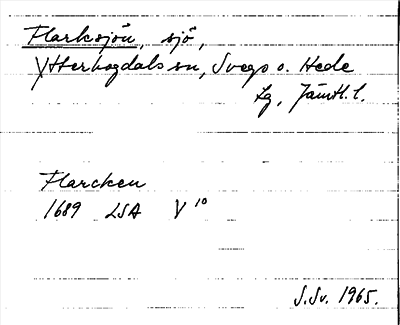 Flarksjön, sjö,
Ytterhogdals sn, Svegs o. Hede
tg, Jämtl. l.
Flarcken
1689 LSA V 10
S.Sv. 1965.